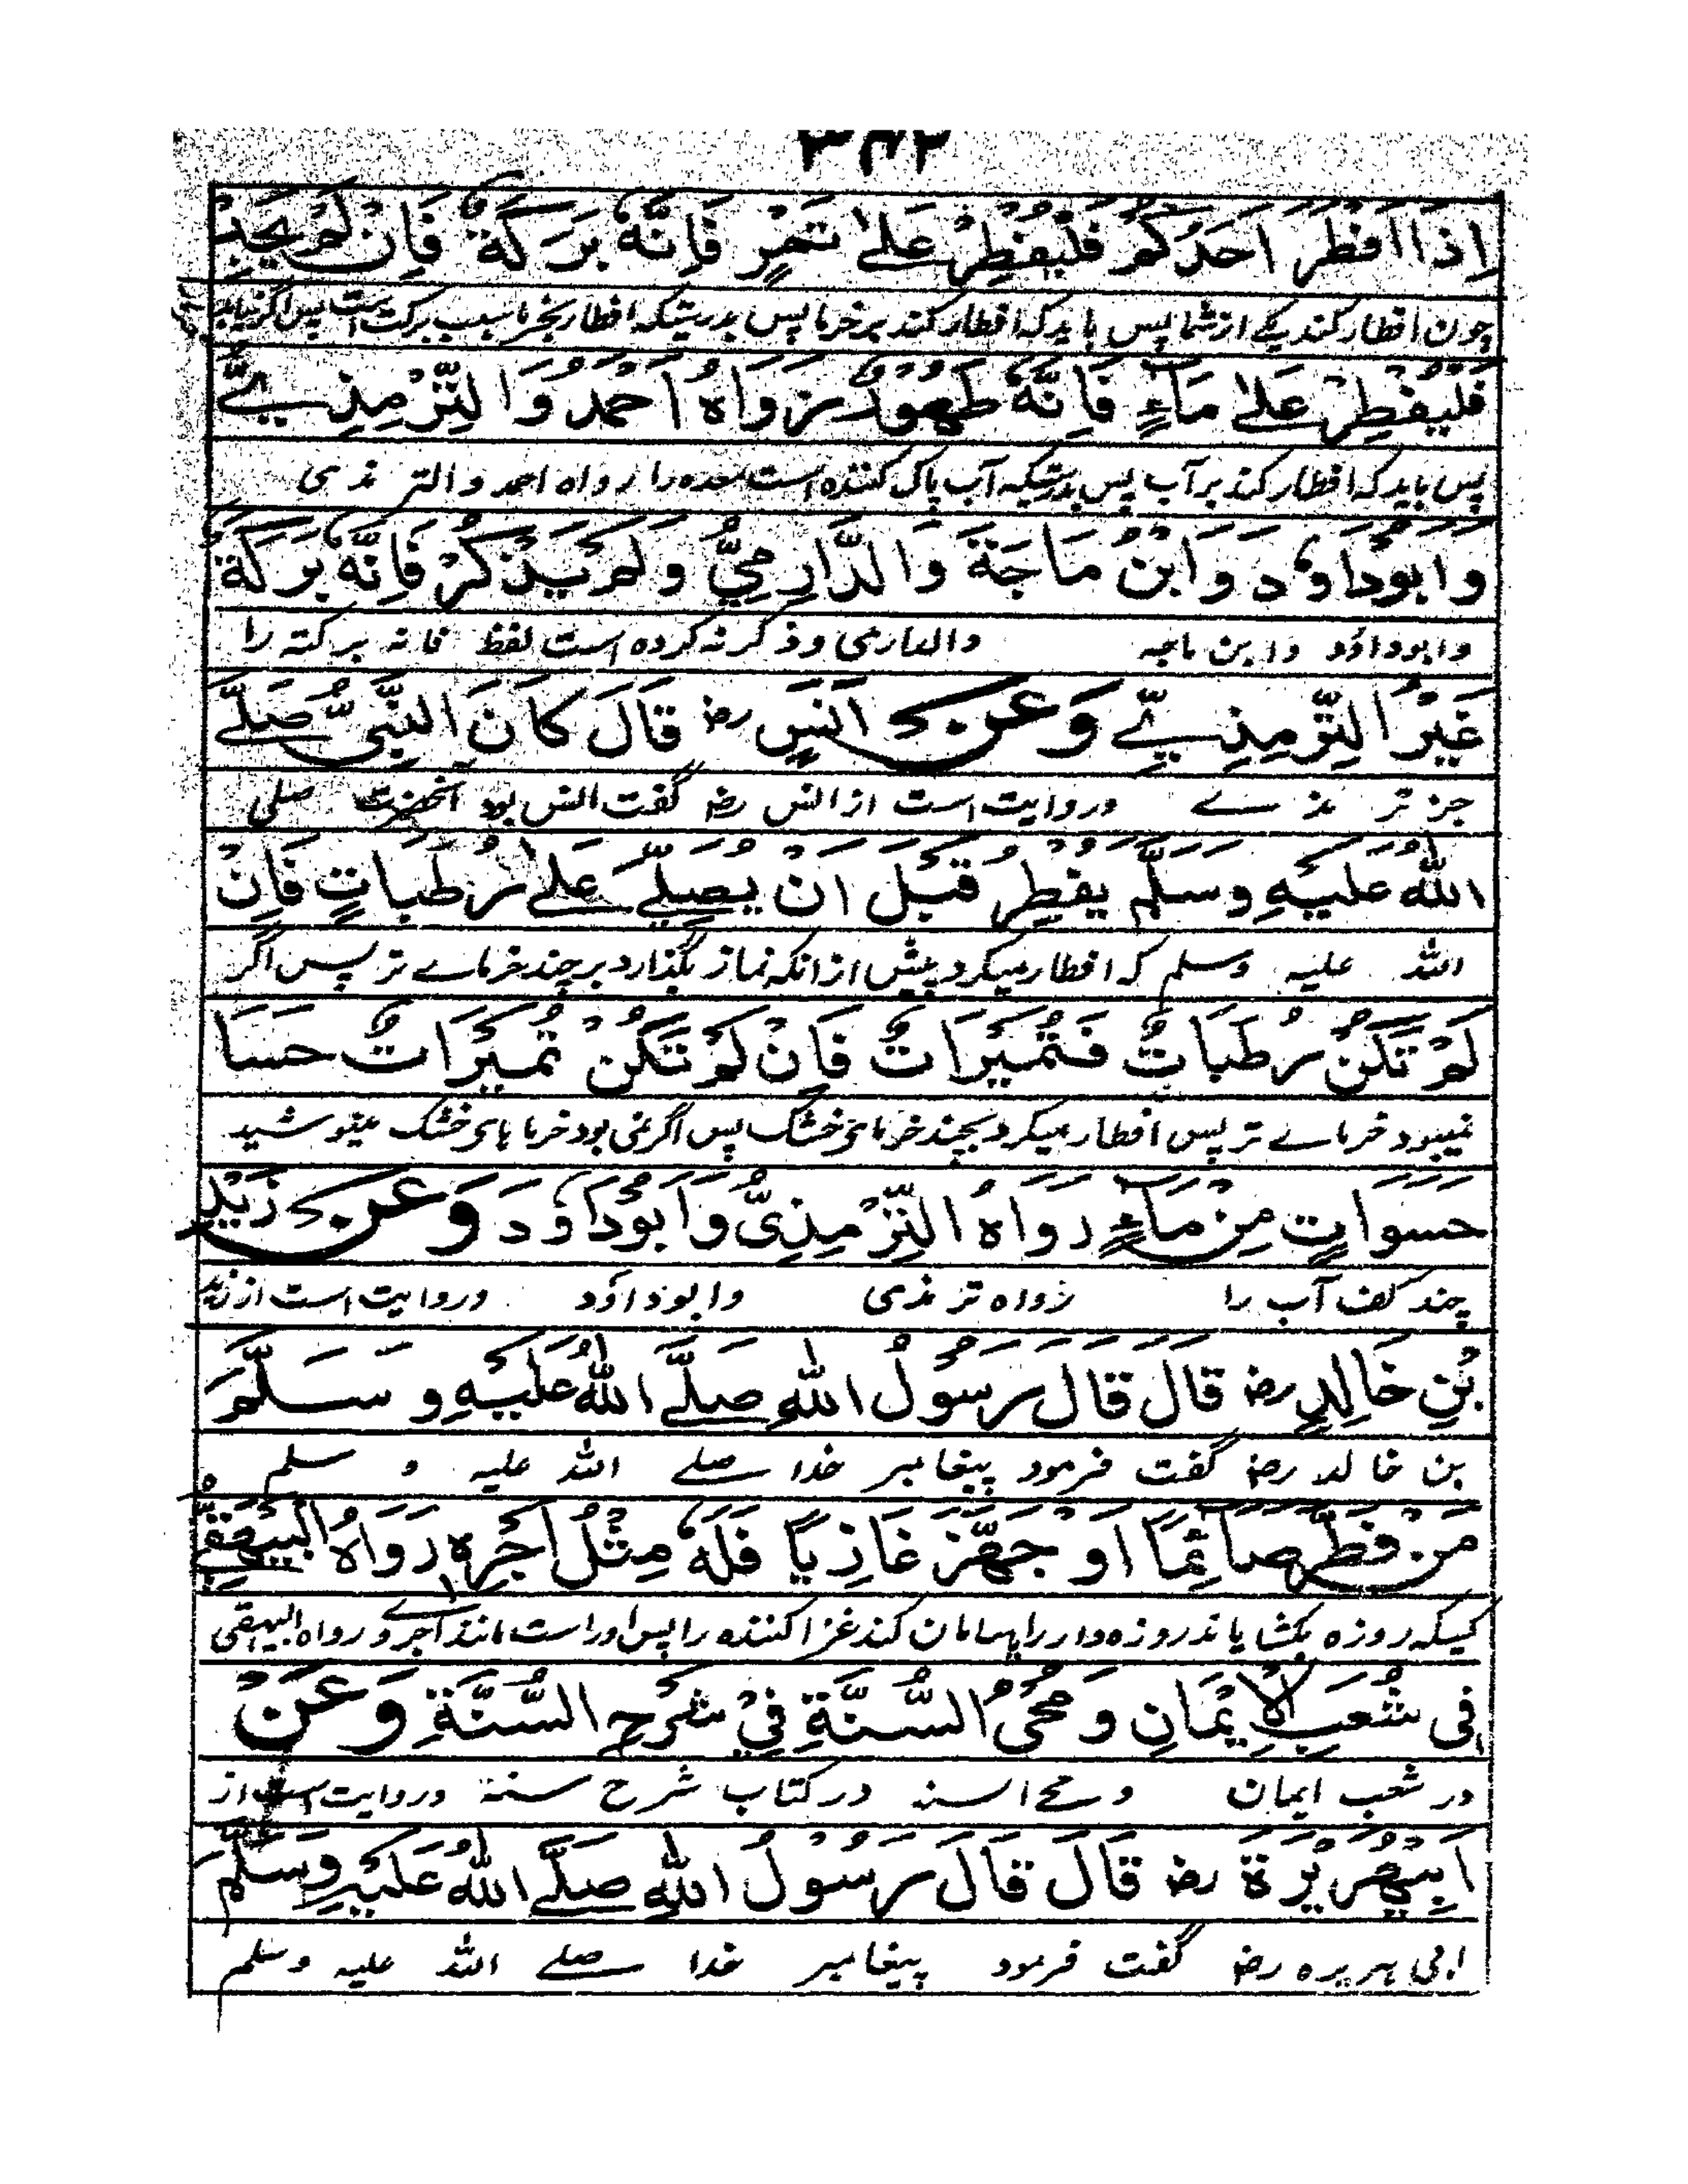 اِذَا اَفْطَرَ اَحَدُكُمْ فَلْيُفْطِرْ عَلىٰ تَمْرٍ فَاِنَّهٗ بَرَكَةٌ فَاِنْ لَمْ يَجِدْ
چون افطار کند یکے از شما پس باید که افطار کند بر خرما پس بدرستیکه افطار بخرما سبب برکت است پس اگر نیابد
فَلْيُفْطِرْ عَلىٰ مَآءٍ فَاِنَّهٗ طَهُوْرٌ رَوَاهُ اَحْمَدُ وَالتِّرْمِذِيُّ
پس باید که افطار کند بر آب پس بدرستیکه آب پاک کننده است معده را رواه احمد والترمذی
وَاَبُوْدَاوٗدَ وَابْنُ مَاجَةَ وَالدَّارِمِيُّ وَلَمْ يَذْكُرْ فَاِنَّهٗ بَرَكَةٌ
وابوداؤد وابن ماجه والدارمی وذکر نه کرده است لفظ فانه برکته را
غَيْرُ التِّرْمِذِيِّ وَعَنْ اَنَسٍ رضـ قَالَ كَانَ النَّبِيُّ صَلَّى
جز ترمذے وروایت است از انس رضـ گفت انس بود آنحضرت صلی
اللّٰهُ عَلَيْهِ وَسَلَّمَ يُفْطِرُ قَبْلَ اَنْ يُصَلِّيَ عَلىٰ رُطَبَاتٍ فَاِنْ
الله علیه وسلم که افطار میکرد پیش از انکه نماز بگذارد بر چند خرماے تر پس اگر
لَمْ تَكُنْ رُطَبَاتٌ فَتُمَيْرَاتٌ فَاِنْ لَمْ تَكُنْ تُمَيْرَاتٌ حَسَا
نمیبود خرماے تر پس افطار میکرد بچند خرمای خشک پس اگر نمی بود خرما هاى خشک مینوشید
حَسَوَاتٍ مِنْ مَآءٍ رَوَاهُ التِّرْمِذِيُّ وَاَبُوْدَاوٗدَ وَعَنْ زَيْدِ
چند کف آب را رواه ترمذی وابوداؤد وروایت است از زید
بْنِ خَالِدٍ رضـ قَالَ قَالَ رَسُوْلُ اللّٰهِ صَلَّى اللّٰهُ عَلَيْهِ وَسَلَّمَ
بن خالد رضـ گفت فرمود پیغامبر خدا صلے الله علیه و سلم
مَنْ فَطَّرَ صَائِمًا اَوْ جَهَّزَ غَازِيًا فَلَهٗ مِثْلُ اَجْرِهٖ رَوَاهُ الْبَيْهَقِيُّ
کسیکه روزه بکشایاند روزه دار را یا سامان کند غزا کننده را پس اوراست مانند اجر وے رواه البیهقی
فِى شُعَبِ الْاِيْمَانِ وَمُحْىُ السُّنَّةِ فِىْ شَرْحِ السُّنَّةِ وَعَنْ
در شعب ایمان و محے السنه در کتاب شرح سنة وروایت است از
اَبِيْهُرَيْرَةَ رضـ قَالَ قَالَ رَسُوْلُ اللّٰهِ صَلَّى اللّٰهُ عَلَيْهِ وَسَلَّمَ
ابی هریره رضـ گفت فرمود پیغامبر خدا صلے الله علیه وسلم